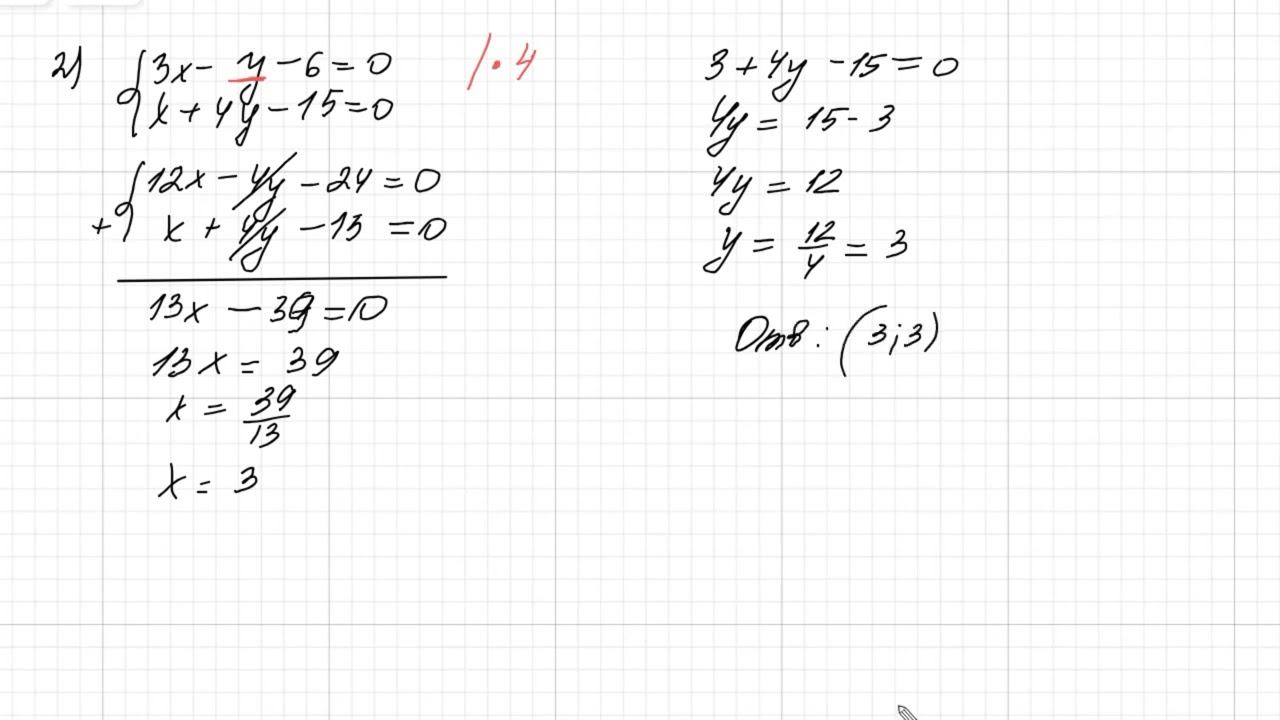 2) 3x - y - 6 = 0 / • 4
x + 4y - 15 = 0
12x - 4y - 24 = 0
+ x + 4y - 13 = 0
13x - 39 = 0
13x = 39
x = 39/13
x = 3
3 + 4y - 15 = 0
4y = 15 - 3
4y = 12
y = 12/4 = 3
Отв: (3;3)